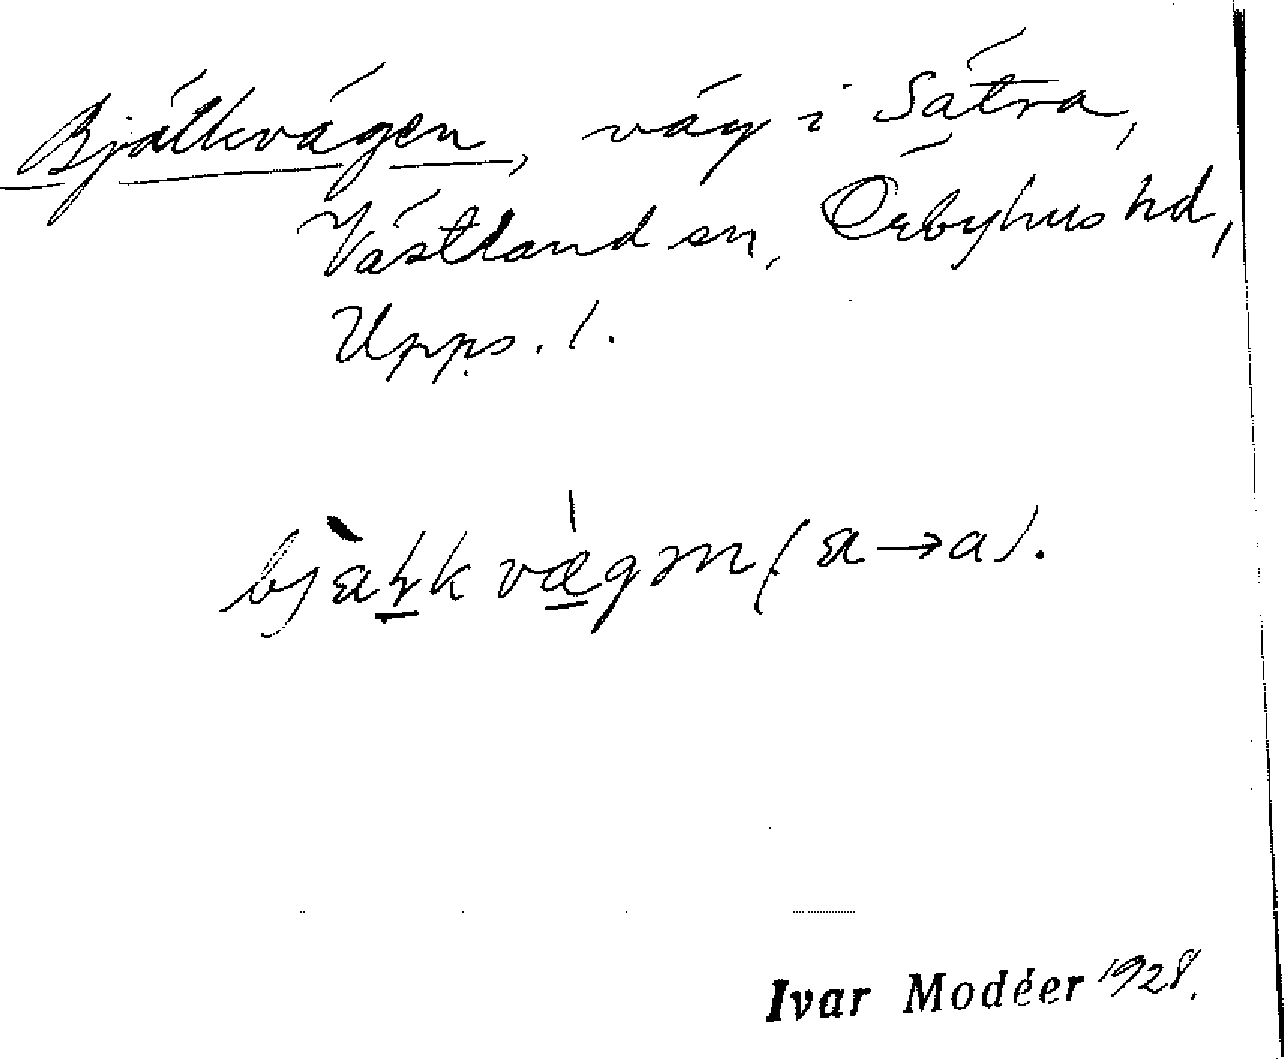 Bjälkvägen, väg i Sätra,
Västland sn, Örbyhus hd,
Upps. l.
bjäḷkvægm (a → a).
Ivar Modéer 1928.